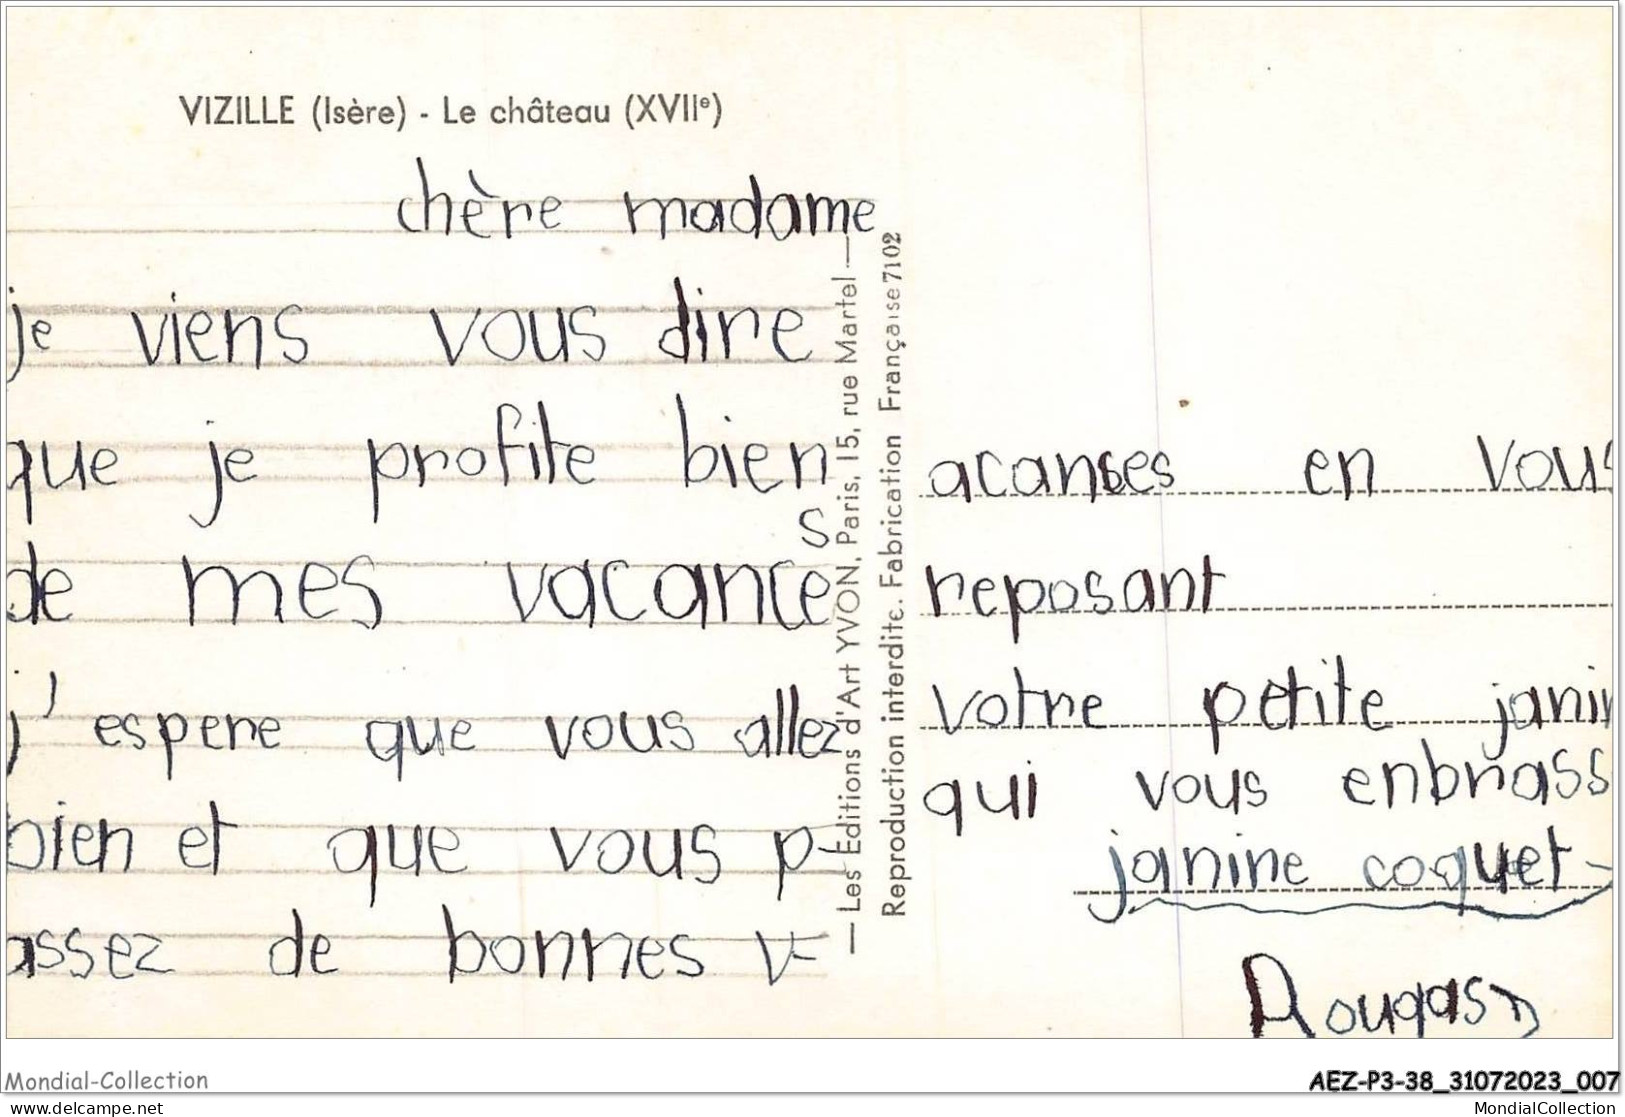 VIZILLE (Isère) - Le château (XVIIe)
chère madame
je viens vous dire
que je profite bien
de mes vacances
j'espere que vous allez
bien et que vous p-
assez de bonnes v-
— Les Editions d'Art YVON, Paris, 15, rue Martel —
Reproduction interdite. Fabrication Française 7102
acanses en vous
reposant
votre petite janin
qui vous enbrass
janine coquet
Rougas
Mondial-Collection
AEZ-P3-38_31072023_007
delcampe.net
MondialCollection